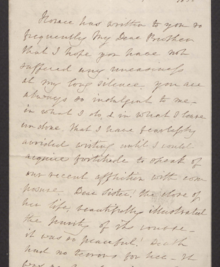 Horace has written to you so
frequently My Dear Brother
that I hope you have not
suffered any uneasiness
at my long silence, you are
always so indulgent to me
in what I do & in what I leave
undone, that I have
avoided writing until I could
acquire fortitude to speak of
our recent affliction with com
posure. Dear Sister, the close of
her life, beautifully illustrated
the
it was so peaceful. Death
had no terrors for her. He